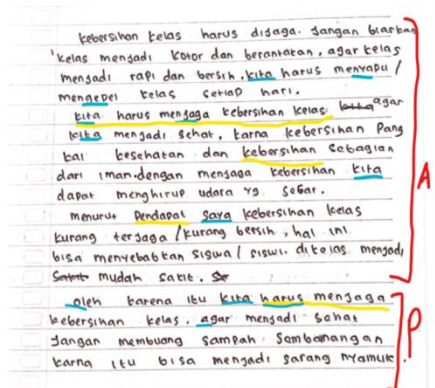 kebersihan kelas harus dijaga. Jangan biarkan
kelas menjadi kotor dan berantakan, agar kelas
menjadi rapi dan bersih, kita harus menyapu /
mengepel kelas setiap hari.
kita harus menjaga kebersihan kelas agar
kita menjadi sehat, karna kebersihan pang
kal kesehatan dan kebersihan sebagian
dari iman. dengan menjaga kebersihan kita
dapat menghirup udara yg segar.
menurut Pendapat saya kebersihan kelas
kurang terjaga / kurang bersih, hal ini
bisa menyebabkan siswa / siswi dikelas menjadi
Sakit mudah sakit.
oleh karena itu kita harus menjaga
kebersihan kelas, agar menjadi sehat
Jangan membuang sampah sembarangan
karna itu bisa menjadi sarang nyamuk.
A
P